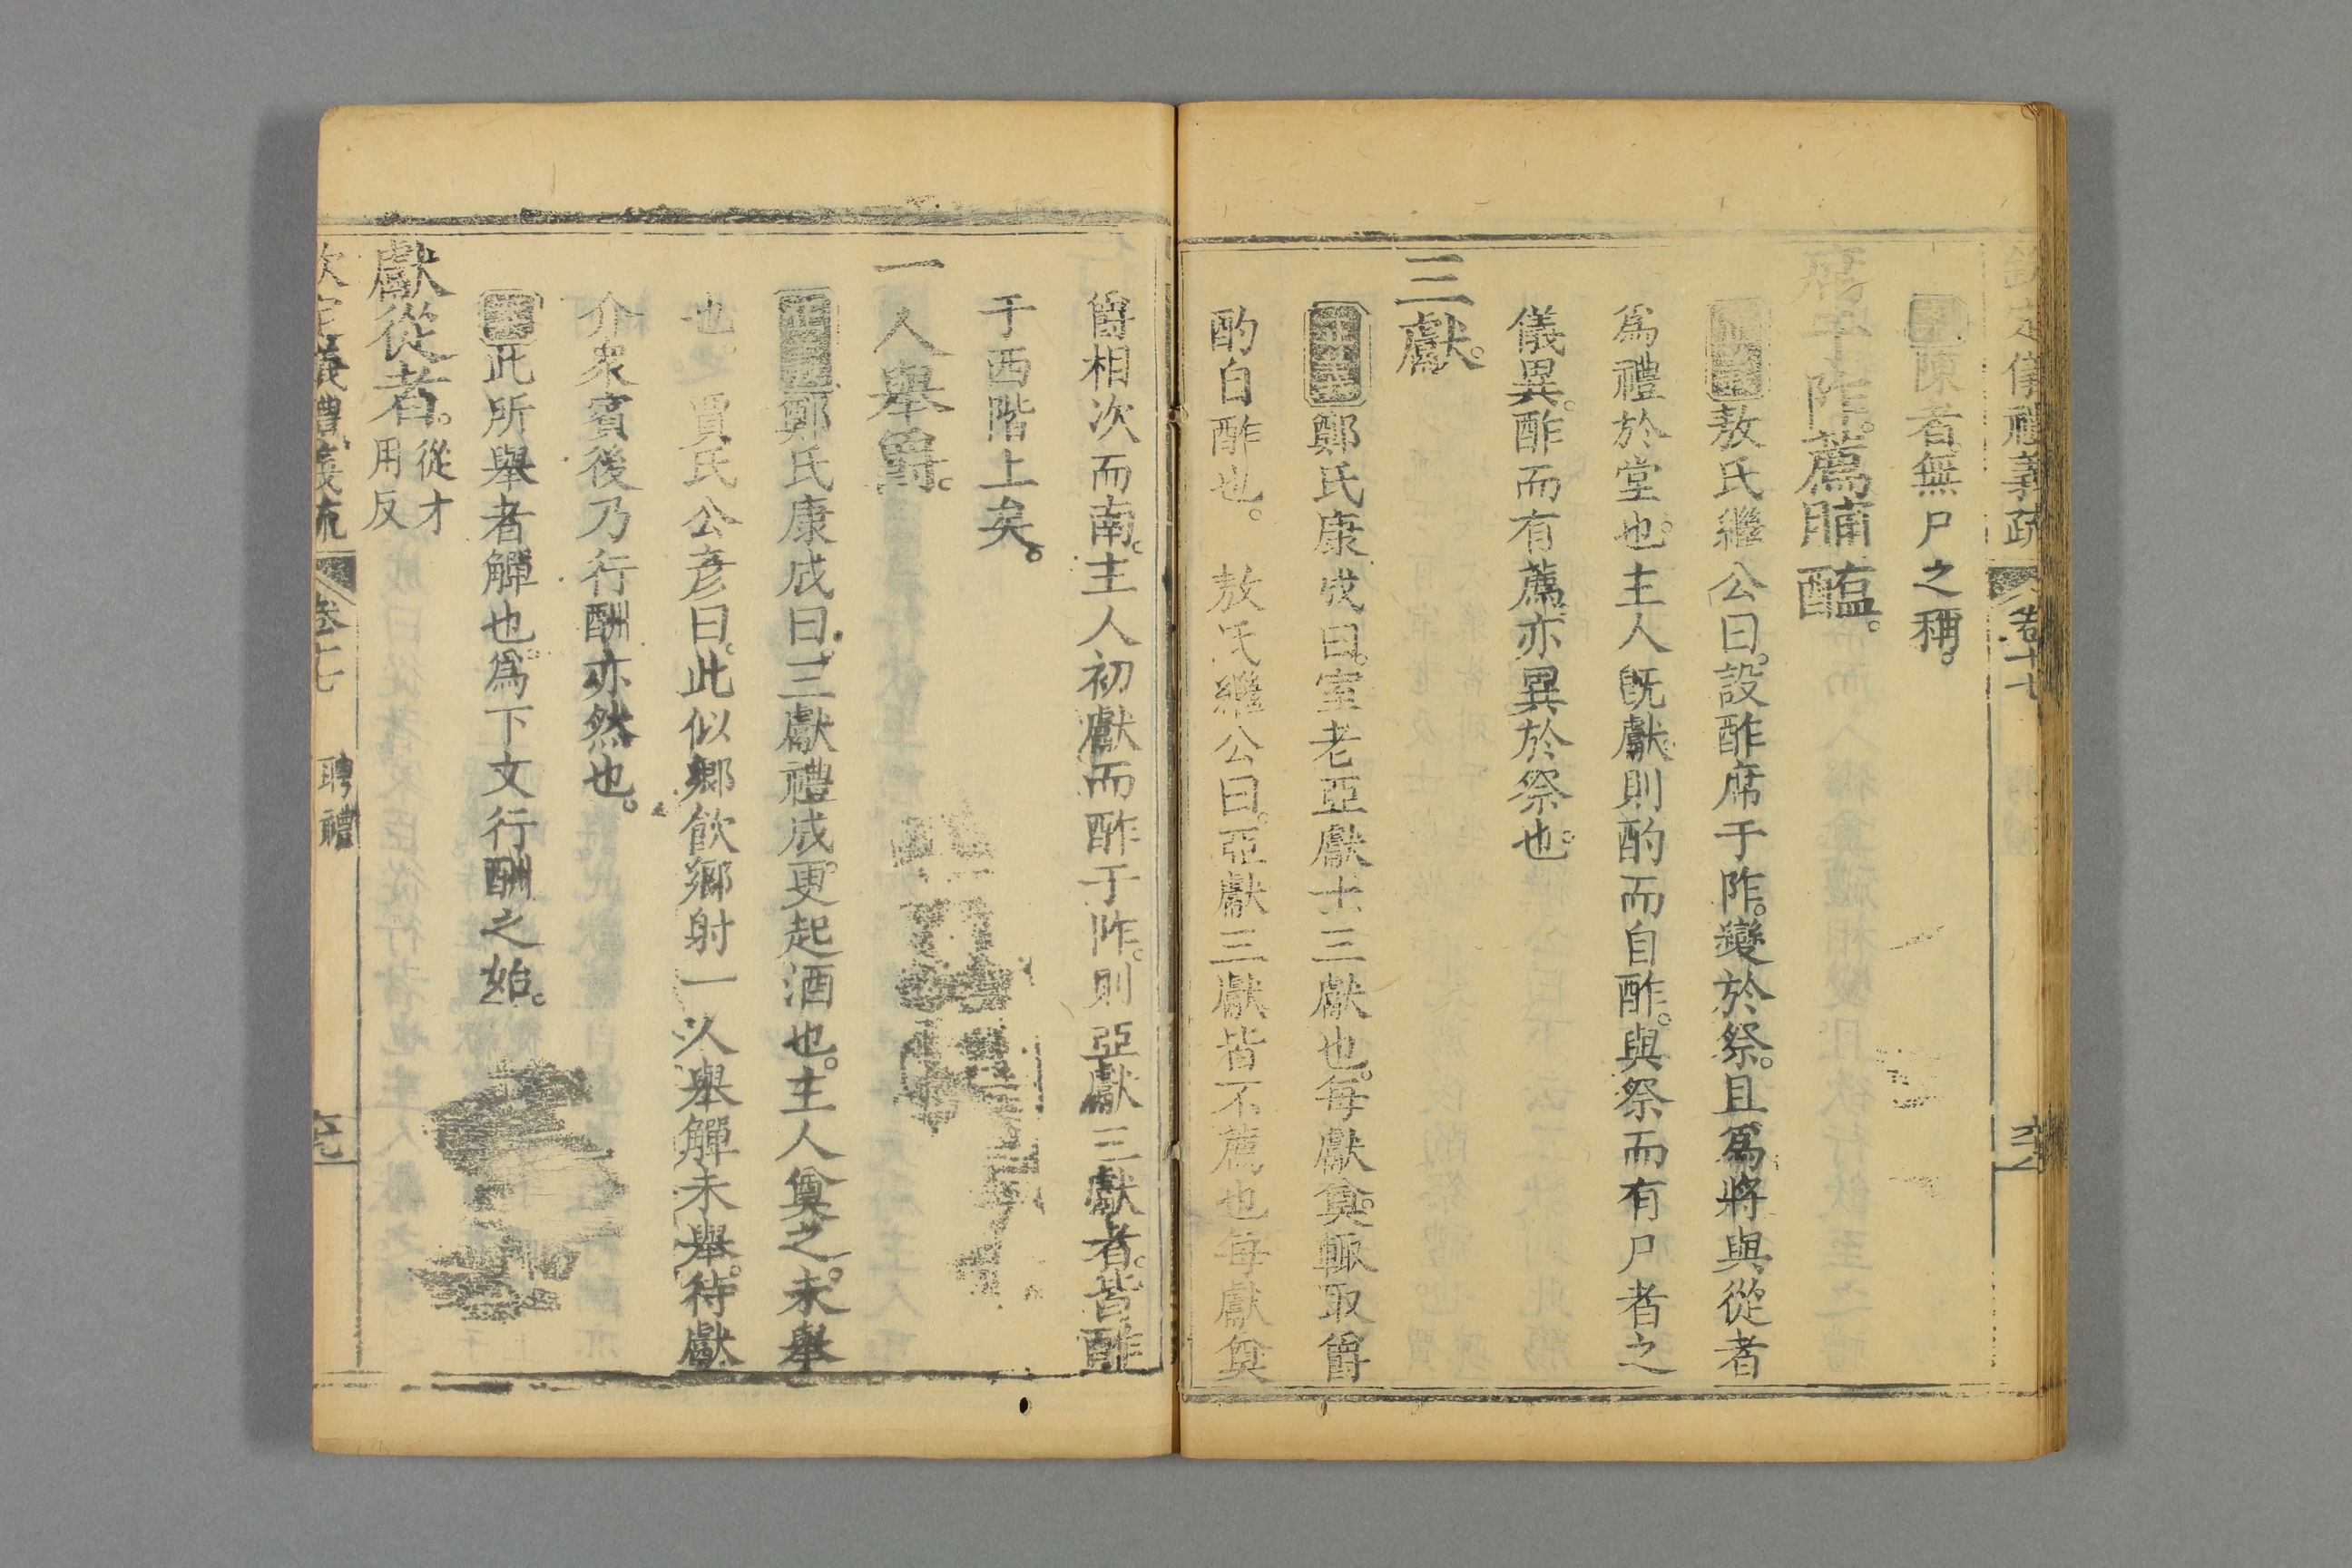 定儀禮義疏 卷十七
陳者無尸之稱。
席于阼。薦脯醢。
敖氏繼公曰。設酢席于阼。變於祭。且爲將與從者
爲禮於堂也。主人旣獻。則酌而自酢。與祭而有尸者之
儀異。酢而有薦。亦異於祭也。
三獻。
正義鄭氏康成曰。室老亞獻。士三獻也。每獻奠。輒取爵
酌自酢也。 敖氏繼公曰。亞獻三獻皆不薦也。每獻奠
爵相次而南。主人初獻而酢于阼。則亞獻三獻者。皆酢
于西階上矣。
一人舉爵。
正義鄭氏康成曰。三獻禮成。更起酒也。主人奠之。未舉
也。 賈氏公彥曰。此似鄉飮鄉射一人舉觶未舉。待獻
介衆賓後乃行酬亦然也。
此所舉者觶也。爲下文行酬之始。
獻從者。從才用反
欽定儀禮義疏 卷十七 聘禮